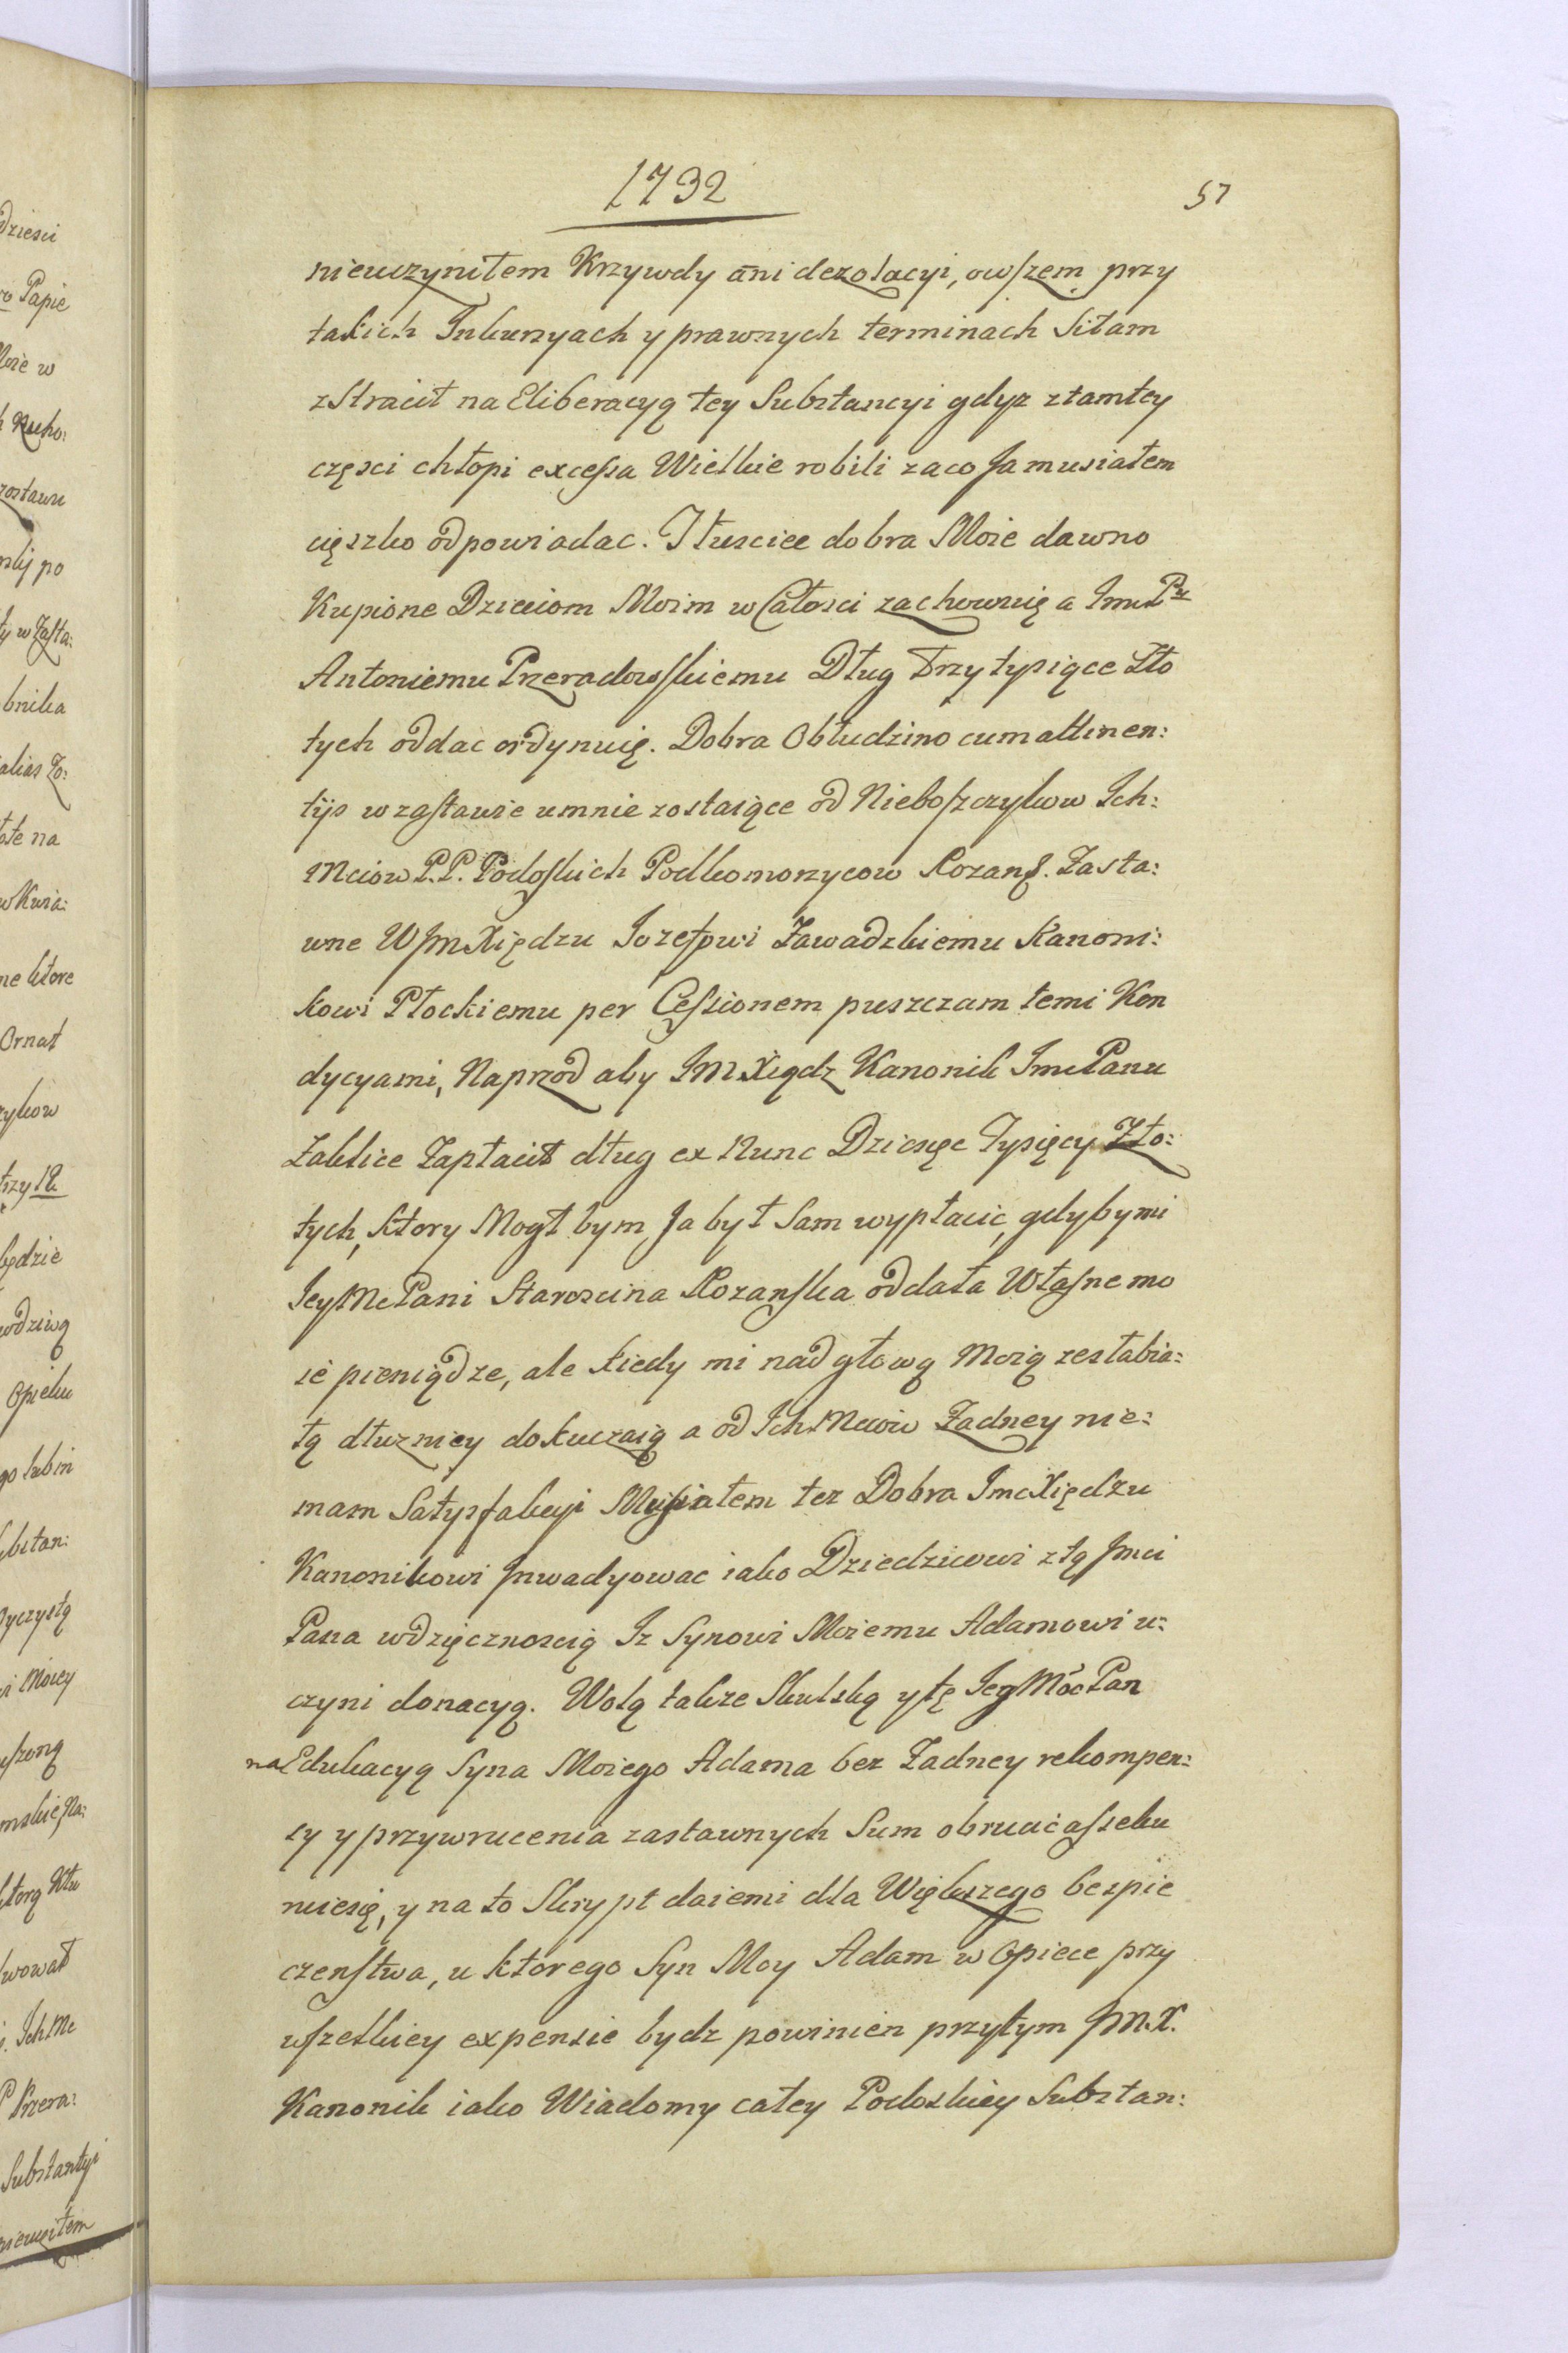 1792
57
nieuczyniłem Krzywdy ani dezolacyi, owſzem przy
takich Inkursyach y prawnych terminach Siłam
zStracił na Eliberacyą tey Substancyi gdyz ztamtey
częsci chłopi exceſsa Wielkie robili zaco Ja musiałem
cięszko odpowiadac. Tłuscice dobra Moie dawno
Kupione Dzieciom Moim w Całosci zachownię a Jmć Pu
Antoniemu Przeradowſkiemu Dług Trzy tysiące Zło
tych oddac ordynuię. Dobra Obłudzino cum attinen:
tijs w zaſtawie umnie zostaiące od Nieboſzczykow Ich:
Mciow P.P. Podoſkich Podkomorzycow Rozanſ. Zasta:
wne WJm Xiędzu Iozefowi Zawadzkiemu Kanoni:
kowi Płockiemu per Ceſsionem puszczam temi Kon
dycyami, Naprzod aby JM Xiądz Kanonik Jmć Panu
Załusce Zapłacił dług ex Nunc Dziesięc Tysięcy Zło:
tych, ktory Mogł bym Ja był Sam wypłacic, gdyby mi
Jey Mc Pani Staroscina Rozanſka oddała Własne mo
ie pieniądze, ale kiedy mi nad głową Moią zesłabia:
łą dłuznicy dokuczaią a od Ich Mciow Zadney nie:
mam Satysfakcyi Muſiałem tez Dobra Jmc Xiędzu
Kanonikowi Jnwadyowac iako Dziedzicowi z tą Jmci
Pana wdzięcznoscią Iz Synowi Moiemu Adamowi u:
czyni donacyą. Wolą takze Skulską y tę Jeg Mośc Pan
na Edukacyą Syna Moiego Adama bez Zadney rekompen:
sy y przywrucenia zastawnych Sum obrucic aſseku
ruiesię, y na to Skrypt daiemi dla Większego bezpie
czenſtwa, u ktorego Syn Moy Adam w Opiece przy
wſzelkiey expensie bydz powinien przytym Jm. X.
Kanonik iako Wiadomy całey Podoskiey Substan:
dziesci
Papie
Moie w
Rucho:
zostawu
po
w Zasta:
bnika
alias Zo:
na
ne ktore
Ornat
zykow
trzy
będzie
Opieku
bstan:
Moiey
ktorą
wował
Ich Mc
P Przera:
Substantyi
nieuczyniłem